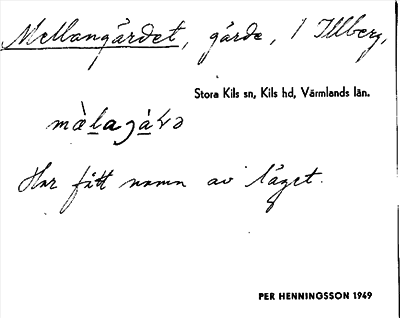 Mellangärdet, gärde, i Illberg,
Stora Kils sn, Kils hd, Värmlands län.
Har fått namn av läget.
PER HENNINGSSON 1949